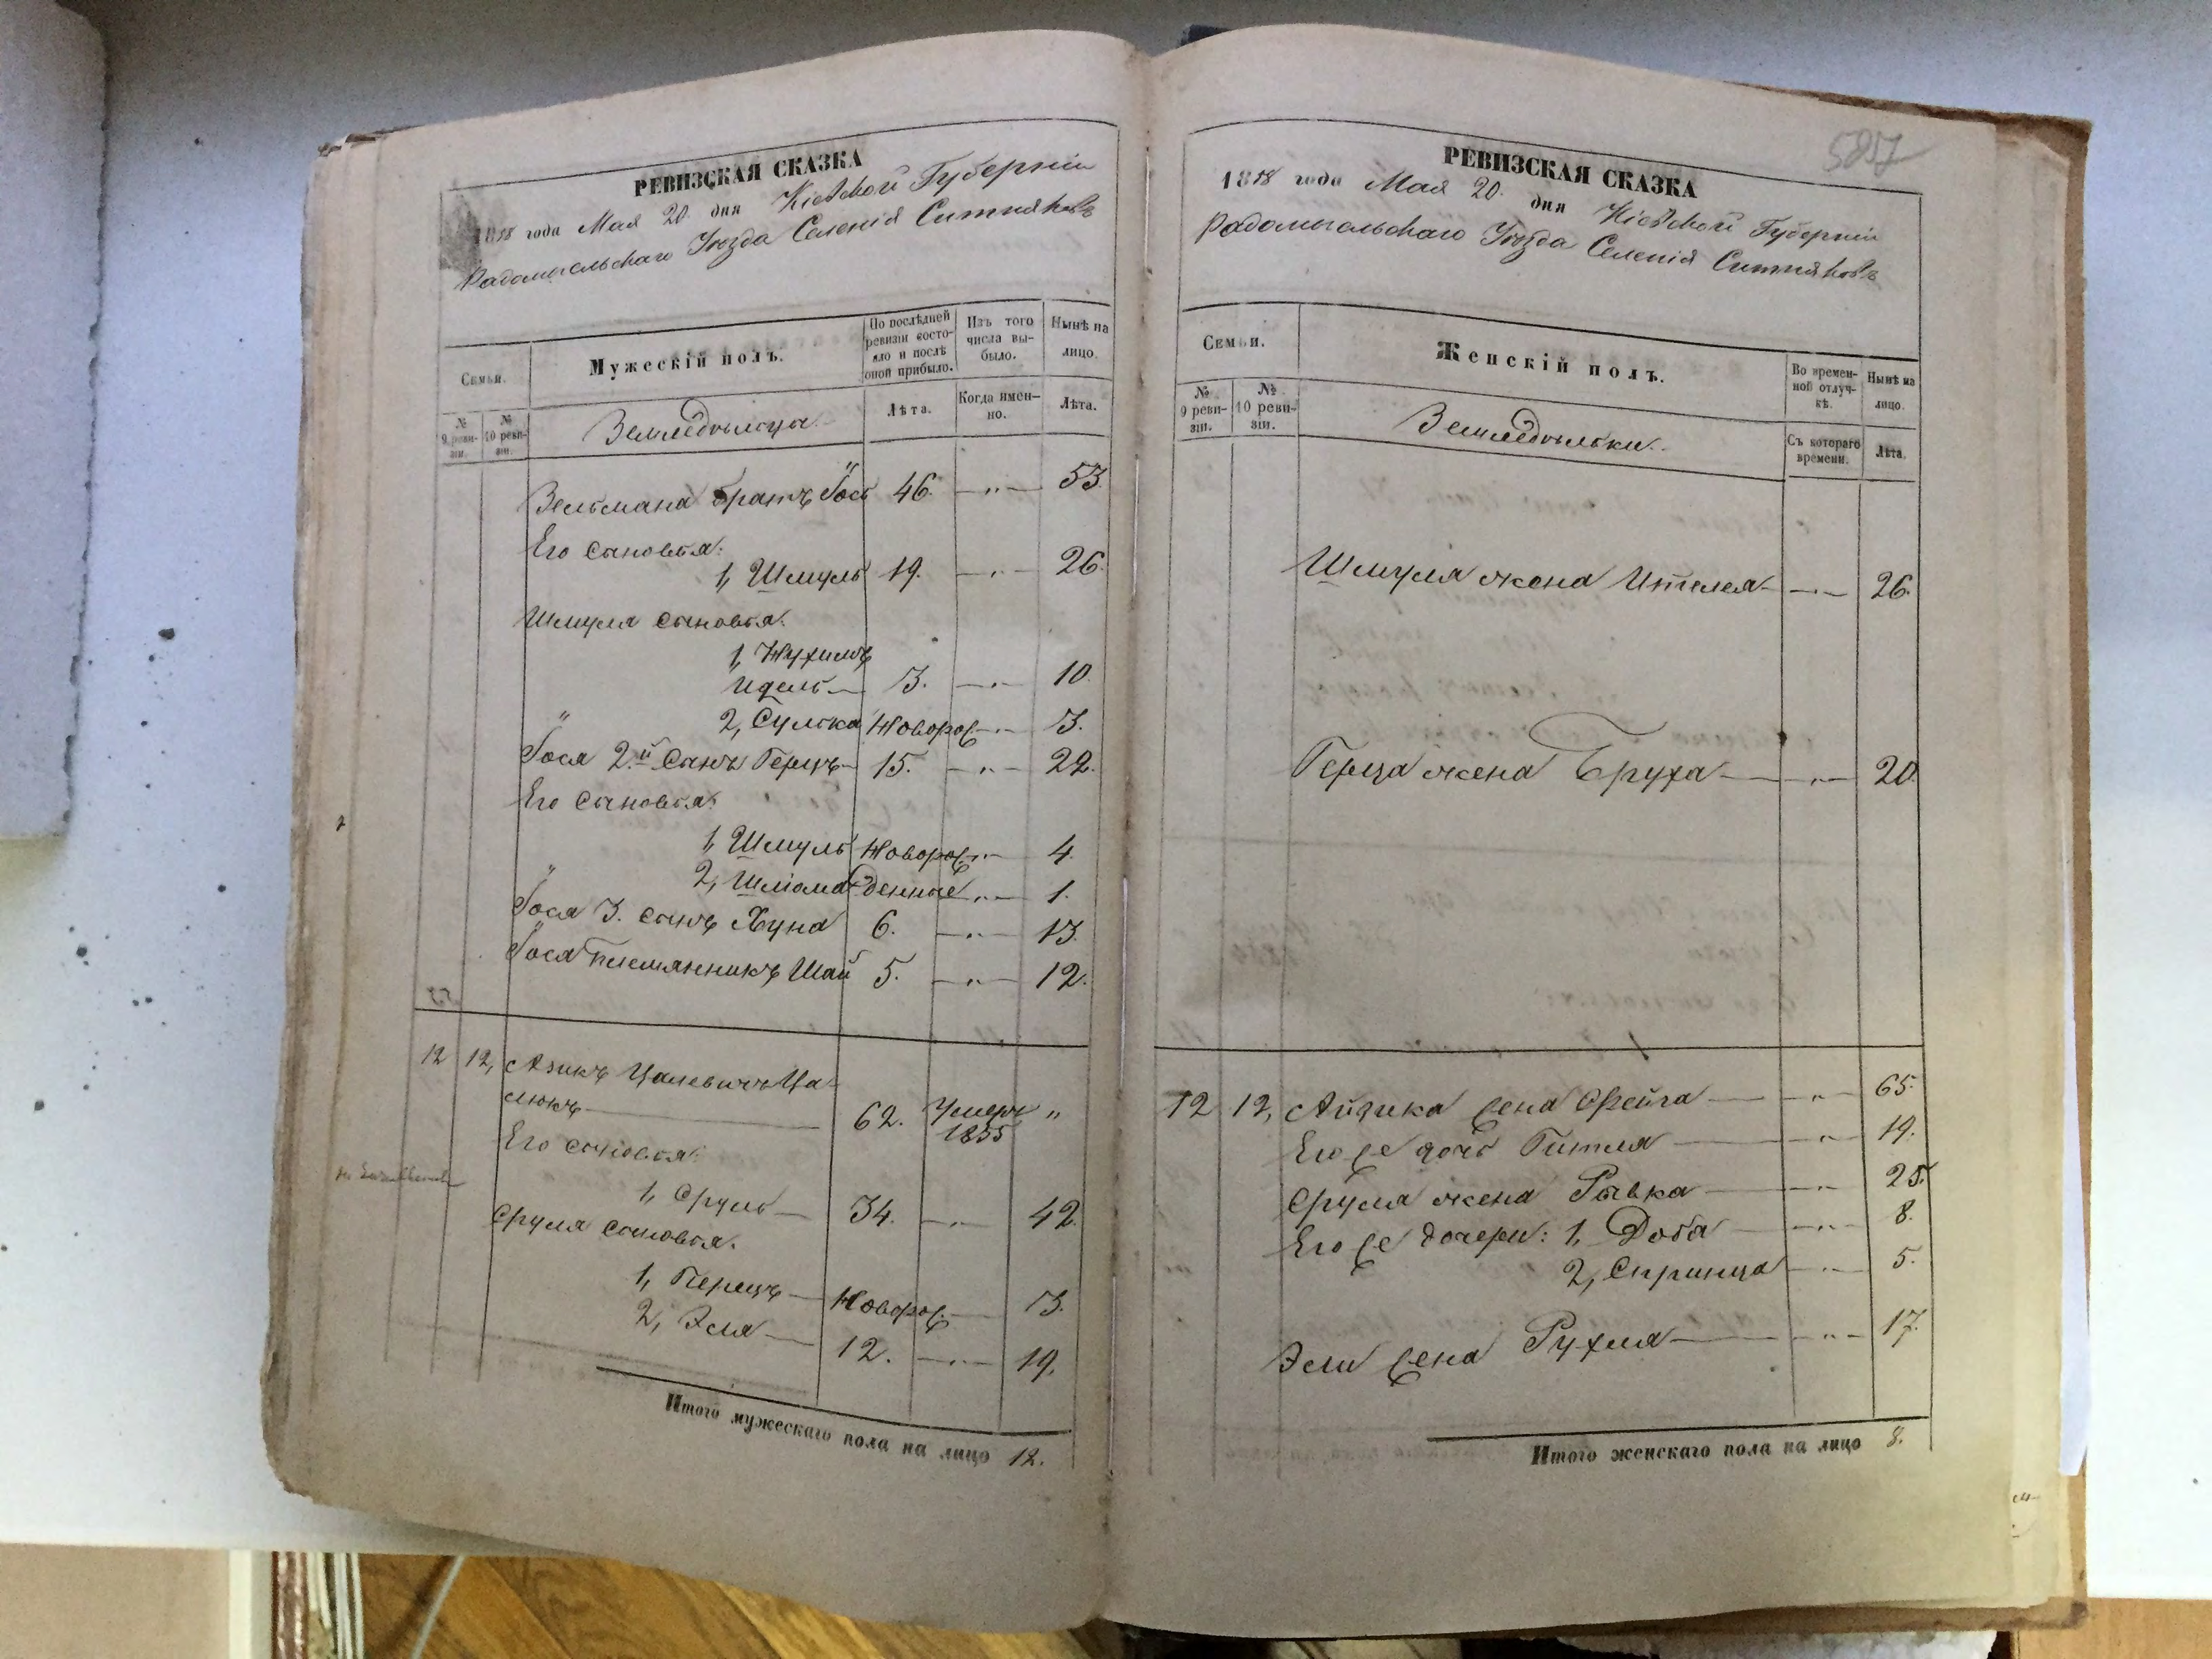 РЕВИЗСКАЯ СКАЗКА
1858 года Мая 20. дня Кіевской Губерніи
Радомысльскаго Уѣзда Селенія Ситняковъ
Семьи.
Мужескій полъ.
По послѣдней ревизіи состояло и послѣ оной прибыло.
Изъ того числа выбыло.
Нынѣ на лицо.
№ 9 ревизіи.
№ 10 ревизіи.
Земледѣльцы.
Лѣта.
Когда именно.
Лѣта.
Зельмана братъ Іось 46. —„— 53
Его сыновья:
1, Шмуль 19. —„— 26.
Шмуля сыновья:
1, Нухимъ
Идель — 3. —„— 10
2, Сулька Новорож —„— 3.
Іося 2й сынъ Герцъ — 15. —„— 22.
Его сыновья:
1, Шмуль Новорож —„— 4.
2, Шліома денные —„— 1.
Іося 3. сынъ Хуна 6. —„— 13.
Іося племянникъ Шай 5. —„— 12.
12 12, Азикъ Цалевичъ Ца-
люкъ — 62. Умеръ „
1855
Его сыновья:
1, Сруль — 34. —„— 42.
Сруля сыновья.
1, Перецъ — Новорож. — 3.
2, Эля — 12. —„— 19.
Итого мужескаго пола на лицо 12.
5857
РЕВИЗСКАЯ СКАЗКА
1858 года Мая 20. дня Кіевской Губерніи
Радомысльскаго Уѣзда Селенія Ситняковъ
Семьи.
Женскій полъ.
Во временной отлучкѣ.
Нынѣ на лицо.
№ 9 ревизіи.
№ 10 ревизіи.
Земледѣльки.
Съ котораго времени.
Лѣта.
Шмуля жена Ителя — —„— 26.
Герца жена Бруха — —„— 20.
12 12, Айзика жена Фейга — —„— 65.
Его же дочь Гитля — —„— 19.
Сруля жена Рывка — —„— 25.
Его же дочери: 1, Доба —„— 8.
2, Спринца —„— 5.
Эли жена Рухля — —„— 17.
Итого женскаго пола на лицо 8.